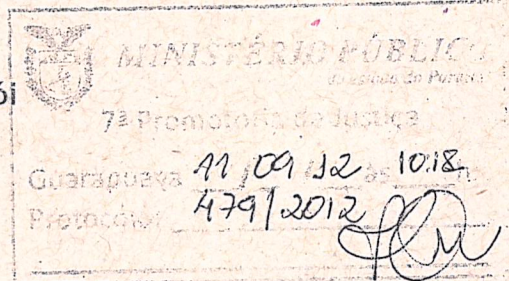 MINISTÉRIO PÚBLICO
do Estado do Paraná
7ª Promotoria de Justiça
Guarapuava 11/09/12 às 10:18
Protocolo: 479/2012